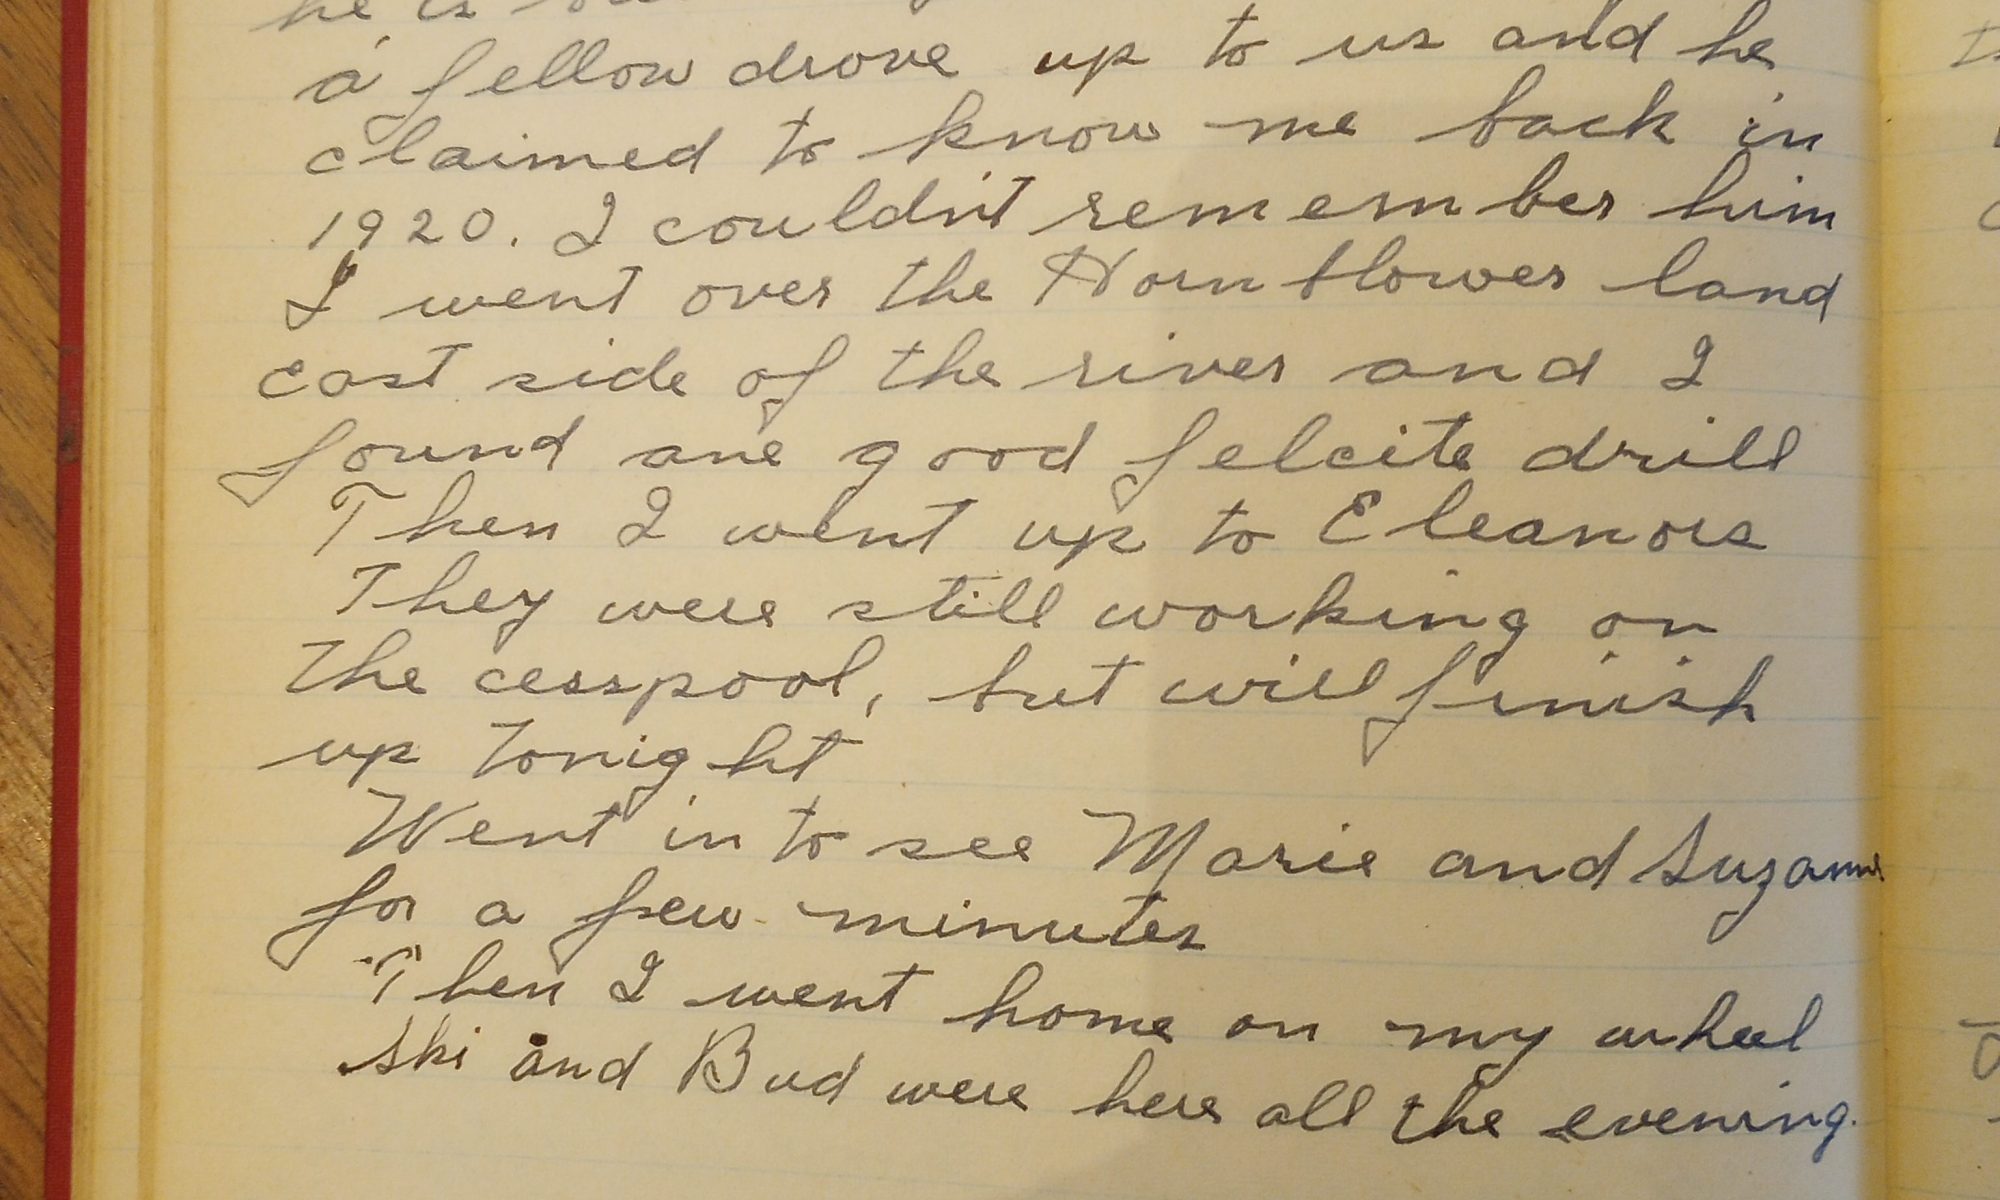 he is
a fellow drove up to us and he
claimed to know me back in
1920. I couldn't remember him
I went over the Hornblower land
east side of the river and I
found one good felcite drill
Then I went up to Eleanors
They were still working on
the cesspool, but will finish
up tonight
Went in to see Marie and Suzanne
for a few minutes
Then I went home on my wheel
Ski and Bud were here all the evening.